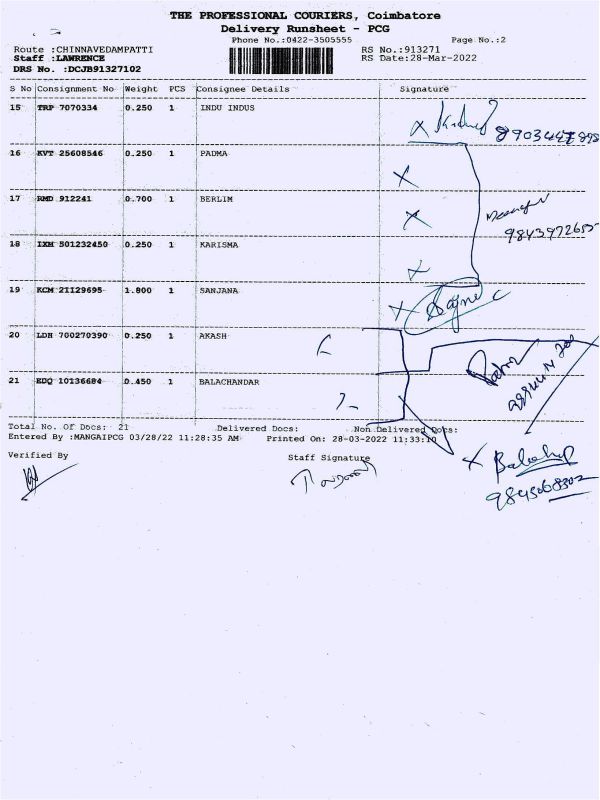 THE PROFESSIONAL COURIERS, Coimbatore
Delivery Runsheet - PCG
Phone No.:0422-3505555 Page No.:2
Route :CHINNAVEDAMPATTI RS No.:913271
Staff :LAWRENCE RS Date:28-Mar-2022
DRS No. :DCJB91327102
S No Consignment No Weight PCS Consignee Details Signature
15 TRP 7070334 0.250 1 INDU INDUS
16 KVT 25608546 0.250 1 PADMA
17 RMD 912241 0.700 1 BERLIM
9843972655
18 IXM 501232450 0.250 1 KARISMA
19 KCM 21129695 1.800 1 SANJANA
20 LDH 700270390 0.250 1 AKASH
21 EDQ 10136684 0.450 1 BALACHANDAR
Total No. Of Docs: 21 Delivered Docs: Non Delivered Docs:
Entered By :MANGAIPCG 03/28/22 11:28:35 AM Printed On: 28-03-2022 11:33:10
Verified By Staff Signature